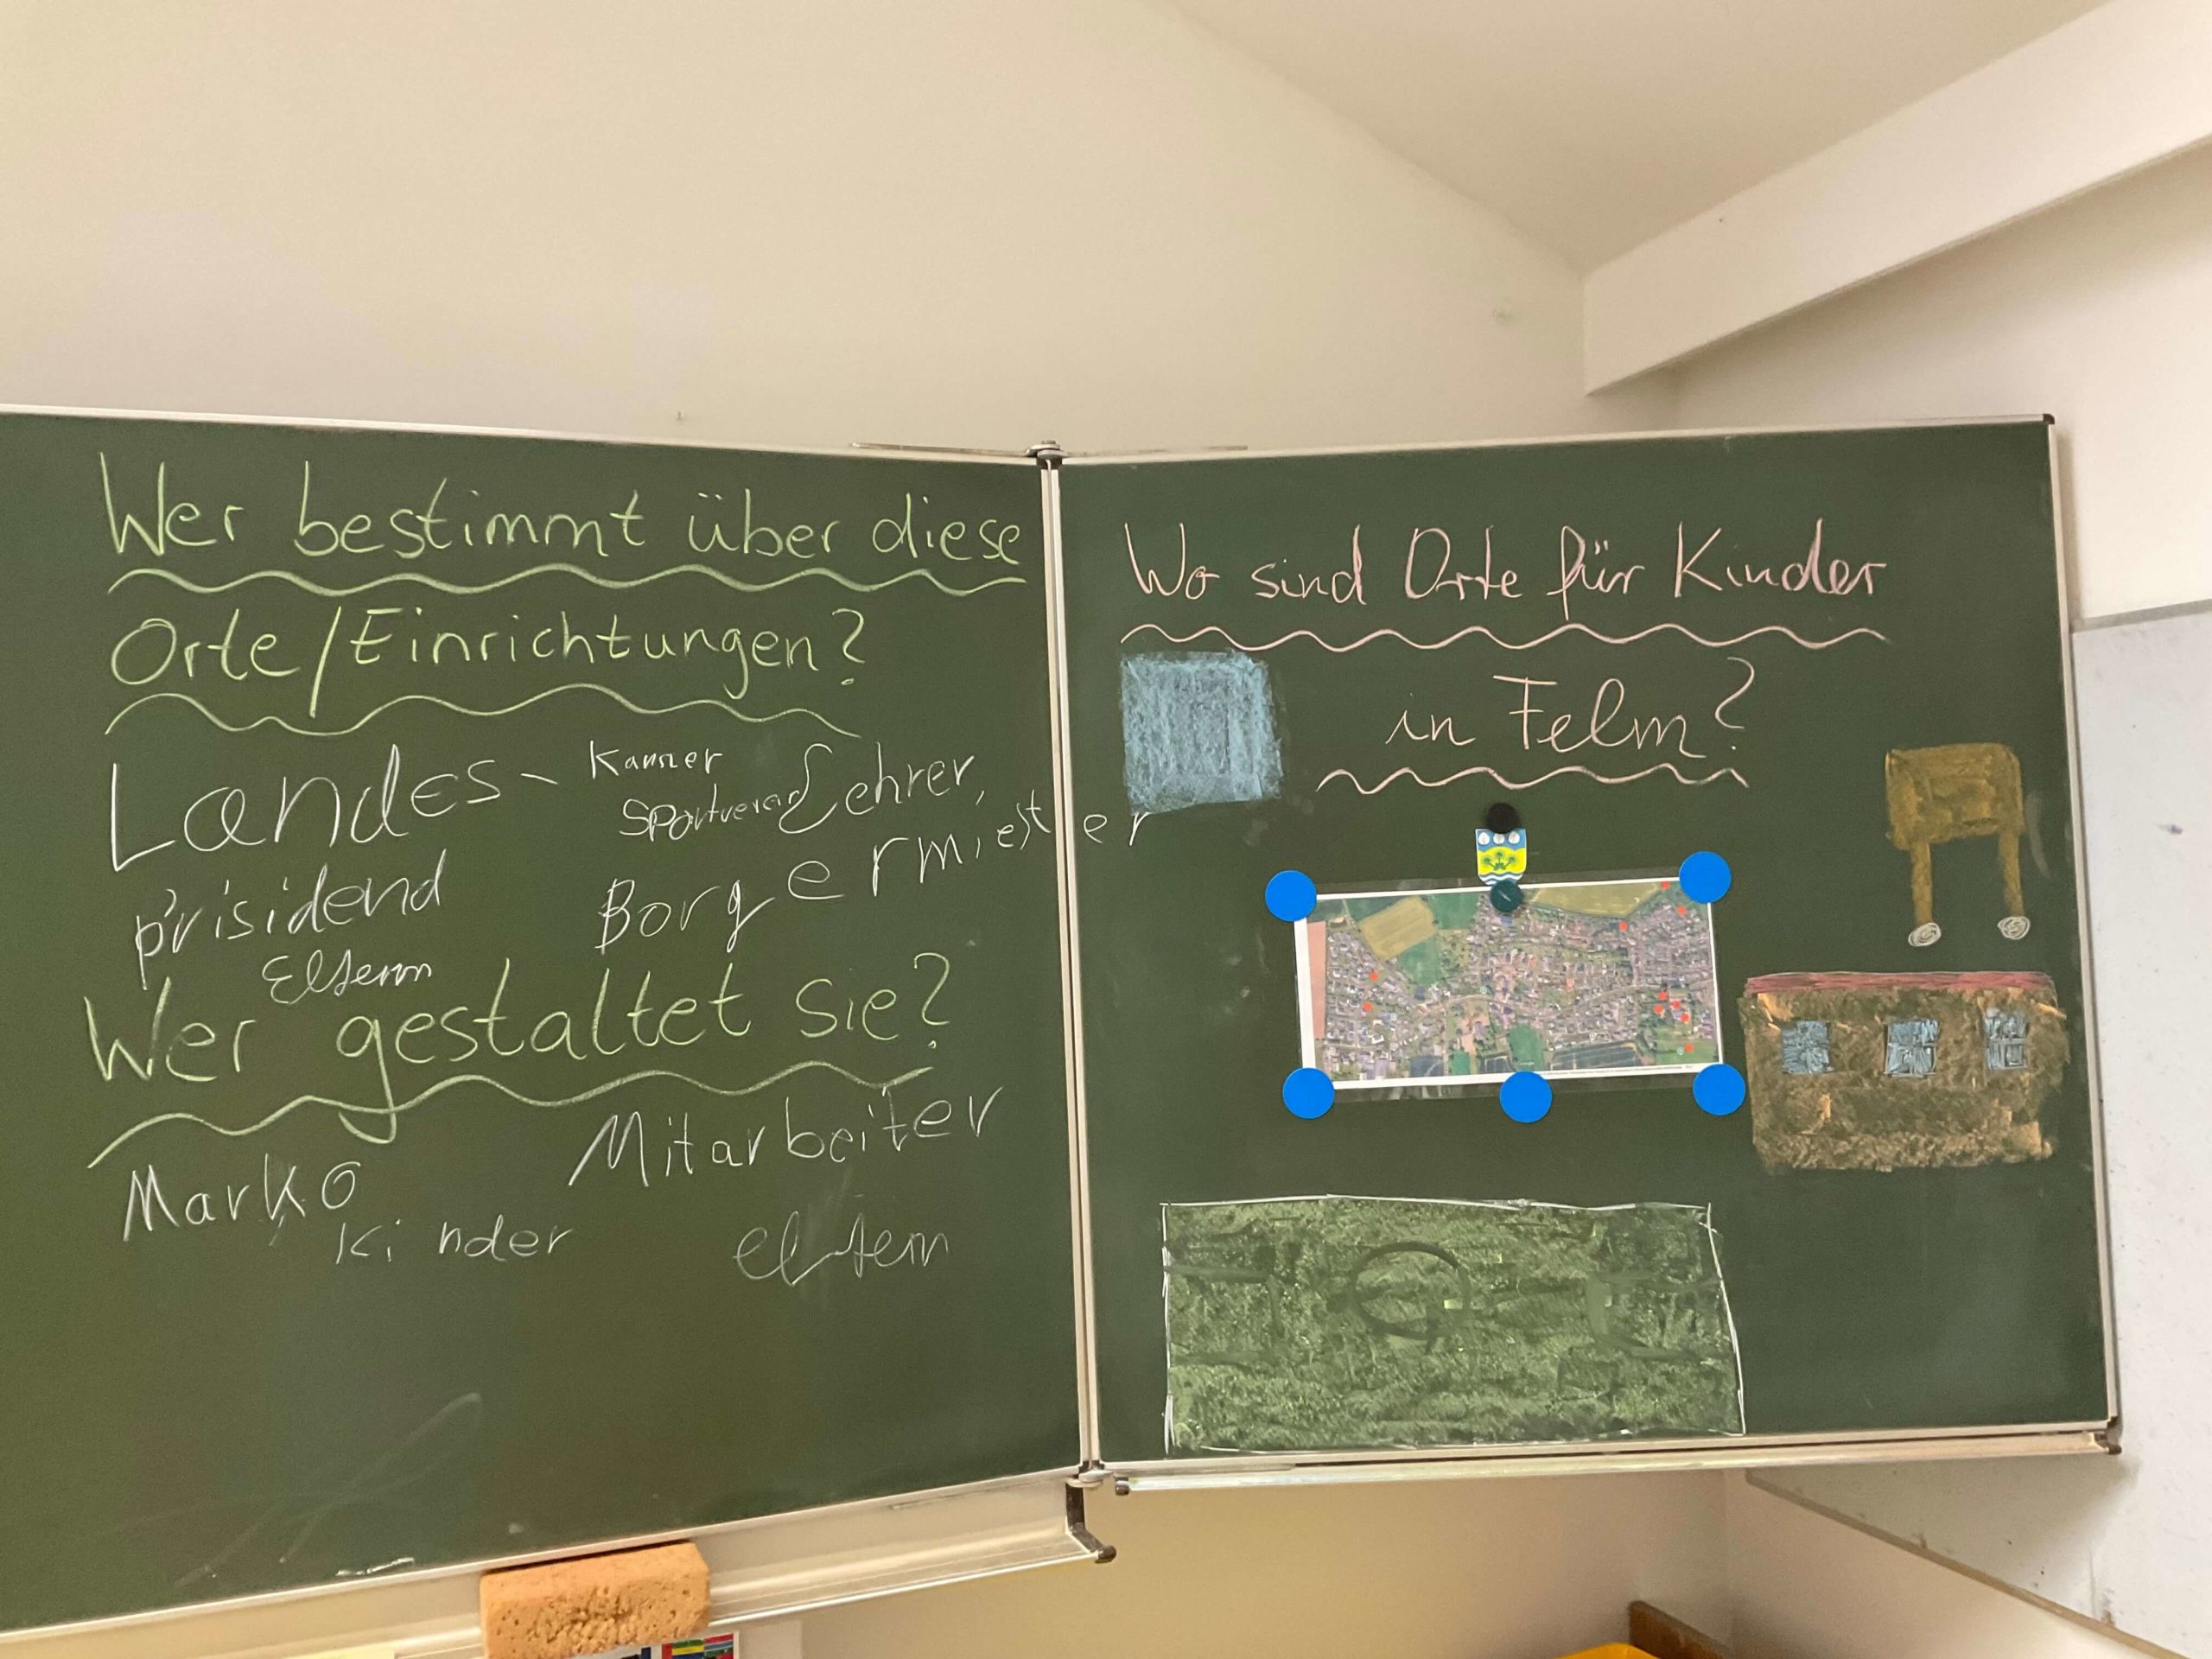 Wer bestimmt über diese
Orte/Einrichtungen?
Landes-
präsidend
Kanzler
Sportverein
Lehrer,
Borgermiester
Eltern
Wer gestaltet sie?
Marko
Mitarbeiter
Kinder
eltern
Wo sind Orte für Kinder
in Felm?